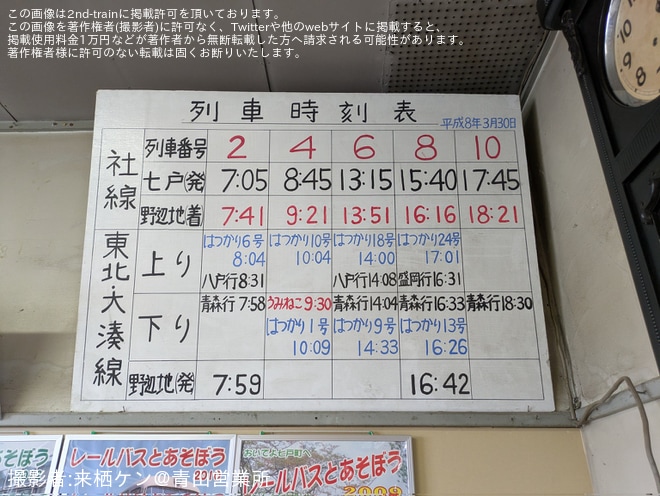 この画像は2nd-trainに掲載許可を頂いております。
この画像を著作権者(撮影者)に許可なく、Twitterや他のwebサイトに掲載すると、
掲載使用料金1万円などが著作者から無断転載した方へ請求される可能性があります。
著作権者様に許可のない転載は固くお断りいたします。
列車時刻表
平成8年3月30日
社線
列車番号 2 4 6 8 10
七戸(発) 7:05 8:45 13:15 15:40 17:45
野辺地(着) 7:41 9:21 13:51 16:16 18:21
東北・大湊線
上り
はつかり6号 はつかり10号 はつかり18号 はつかり24号
8:04 10:04 14:00 17:01
八戸行8:31 八戸行14:08 盛岡行16:31
下り
青森行7:58 うみねこ9:30 青森行14:04 青森行16:33 青森行18:30
はつかり1号 はつかり9号 はつかり13号
10:09 14:33 16:26
野辺地(発) 7:59 16:42
あそぼう
レールバスとあそぼう
おいでよ七戸町へ
レールバスとあそぼう
2009
撮影者:来栖ケン@青田営業所